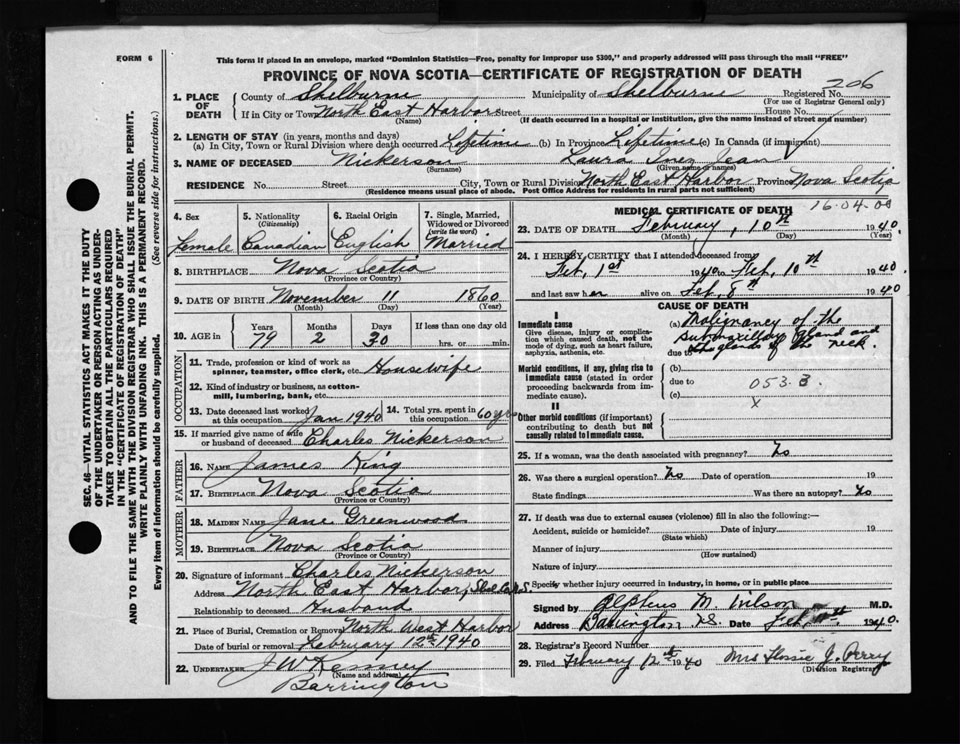 FORM 6
This form if placed in an envelope, marked "Dominion Statistics—Free, penalty for improper use $300," and properly addressed will pass through the mail "FREE"
PROVINCE OF NOVA SCOTIA—CERTIFICATE OF REGISTRATION OF DEATH
206
SEC. 46—VITAL STATISTICS ACT MAKES IT THE DUTY
OF THE UNDERTAKER OR PERSON ACTING AS UNDER-
TAKER TO OBTAIN ALL THE PARTICULARS REQUIRED
IN THE "CERTIFICATE OF REGISTRATION OF DEATH"
AND TO FILE THE SAME WITH THE DIVISION REGISTRAR WHO SHALL ISSUE THE BURIAL PERMIT.
WRITE PLAINLY WITH UNFADING INK. THIS IS A PERMANENT RECORD.
Every item of information should be carefully supplied. (See reverse side for instructions.)
1. PLACE OF DEATH
County of Shelburne Municipality of Shelburne Registered No.
(For use of Registrar General only)
If in City or Town North East Harbor Street House No.
(Name) (If death occurred in a hospital or institution, give the name instead of street and number)
2. LENGTH OF STAY (in years, months and days)
(a) In City, Town or Rural Division where death occurred Lifetime (b) In Province Lifetime (c) In Canada (if immigrant)
3. NAME OF DECEASED Nickerson Laura Inez Jean
(Surname) (Given name or names)
RESIDENCE No. Street City, Town or Rural Division North East Harbor Province Nova Scotia
(Residence means usual place of abode. Post Office Address for residents in rural parts not sufficient)
4. Sex
Female
5. Nationality
(Citizenship)
Canadian
6. Racial Origin
English
7. Single, Married,
Widowed or Divorced
(write the word)
Married
8. BIRTHPLACE Nova Scotia
(Province or Country)
9. DATE OF BIRTH November 11 1860
(Month) (Day) (Year)
10. AGE in
Years Months Days If less than one day old
79 2 30 hrs. or min.
OCCUPATION
11. Trade, profession or kind of work as
spinner, teamster, office clerk, etc. Housewife
12. Kind of industry or business, as cotton-
mill, lumbering, bank, etc.
13. Date deceased last worked
at this occupation Jan 1940
14. Total yrs. spent in
this occupation 60 yrs
15. If married give name of wife
or husband of deceased Charles Nickerson
FATHER
16. NAME James King
17. BIRTHPLACE Nova Scotia
(Province or Country)
MOTHER
18. MAIDEN NAME Jane Greenwood
19. BIRTHPLACE Nova Scotia
(Province or Country)
20. Signature of informant Charles Nickerson
Address North East Harbor,
Relationship to deceased Husband
21. Place of Burial, Cremation or Removal North West Harbor
Date of burial or removal February 12th 1940
22. UNDERTAKER J W Kenney
(Name and address)
Barrington
MEDICAL CERTIFICATE OF DEATH
16.04.00
23. DATE OF DEATH February, 10th 1940
(Month) (Day) (Year)
24. I HEREBY CERTIFY that I attended deceased from
Feb, 1st 1940 to Feb. 10th 1940.
and last saw her alive on Feb, 8th 1940
CAUSE OF DEATH
I
Immediate cause
Give disease, injury or complica-
tion which caused death, not the
mode of dying, such as heart failure,
asphyxia, asthenia, etc.
(a) Malignancy of the
submaxillary gland and
due to the glands of the neck.
Morbid conditions, if any, giving rise to
immediate cause (stated in order
proceeding backwards from im-
mediate cause).
(b)
due to 053.B
(c) x
II
Other morbid conditions (if important)
contributing to death but not
causally related to immediate cause.
25. If a woman, was the death associated with pregnancy? No
26. Was there a surgical operation? No Date of operation 19
State findings Was there an autopsy? No
27. If death was due to external causes (violence) fill in also the following:—
Accident, suicide or homicide? Date of injury 19
(State which)
Manner of injury
(How sustained)
Nature of injury
Specify whether injury occurred in industry, in home, or in public place
Signed by Alpheus M. Wilson M.D.
Address Barrington N.S. Date Feb. 1940.
28. Registrar's Record Number
29. Filed February 12th 1940 Mrs Flossie J. Perry
(Division Registrar)